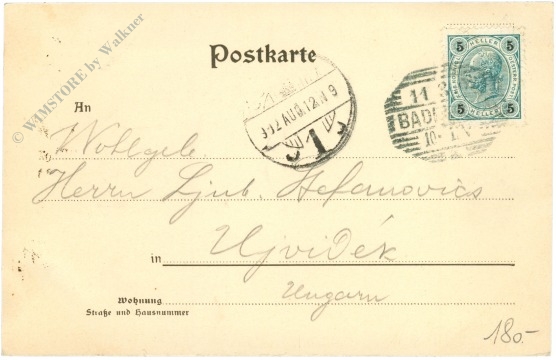 © W1MSTORE by Walkner
Postkarte
5 HELLER 5
5 HELLER 5
11 8
BAD
10
912 AUG. 12 N 9
1
An
Wohlgeb.
Herrn Ljub. Stefanovics
Ujvidék
in
Ungarn
Wohnung
Straße und Hausnummer
180.-